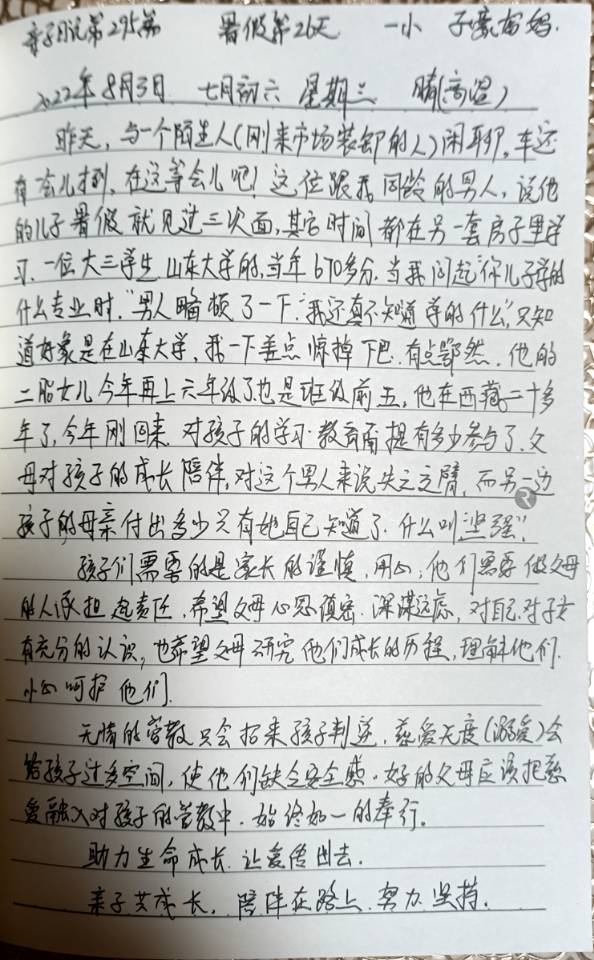 亲子日记第295篇 暑假第26天 一小 子豪妈妈.
2022年8月3日 七月初六 星期三 晴(高温)
昨天,与一个陌生人(刚来市场装卸的人)闲聊,车还
有会儿才到,在这等会儿吧!这位跟我同龄的男人,说他
的儿子暑假就见过三次面,其它时间都在另一套房子里学
习.一位大三学生山东大学的,当年670多分.当我问起"你儿子学的
什么专业时."男人略顿了一下."我还真不知道学的什么",只知
道好象是在山东大学,我一下差点惊掉下巴.有点鄂然.他的
二胎女儿今年再上六年级了也是班级前五,他在西藏二十多
年了,今年刚回来.对孩子的学习.教育甭提有多少参与了.父
母对孩子的成长陪伴,对这个男人来说失之交臂,而另一边
孩子的母亲付出多少只有她自己知道了.什么叫"坚强".
孩子们需要的是家长的谨慎,用心.他们需要做父母
的人承担起责任,希望父母心思慎密.深谋远虑,对自己对子女
有充分的认识,也希望父母研究他们成长的历程,理解他们.
小心呵护他们.
无情的管教只会招来孩子判逆.慈爱无度(溺爱)会
给孩子过多空间,使他们缺乏安全感.好的父母应该把慈
爱融入对孩子的管教中.始终如一的奉行.
助力生命成长.让爱传出去.
亲子共成长,陪伴在路上.努力.坚持.